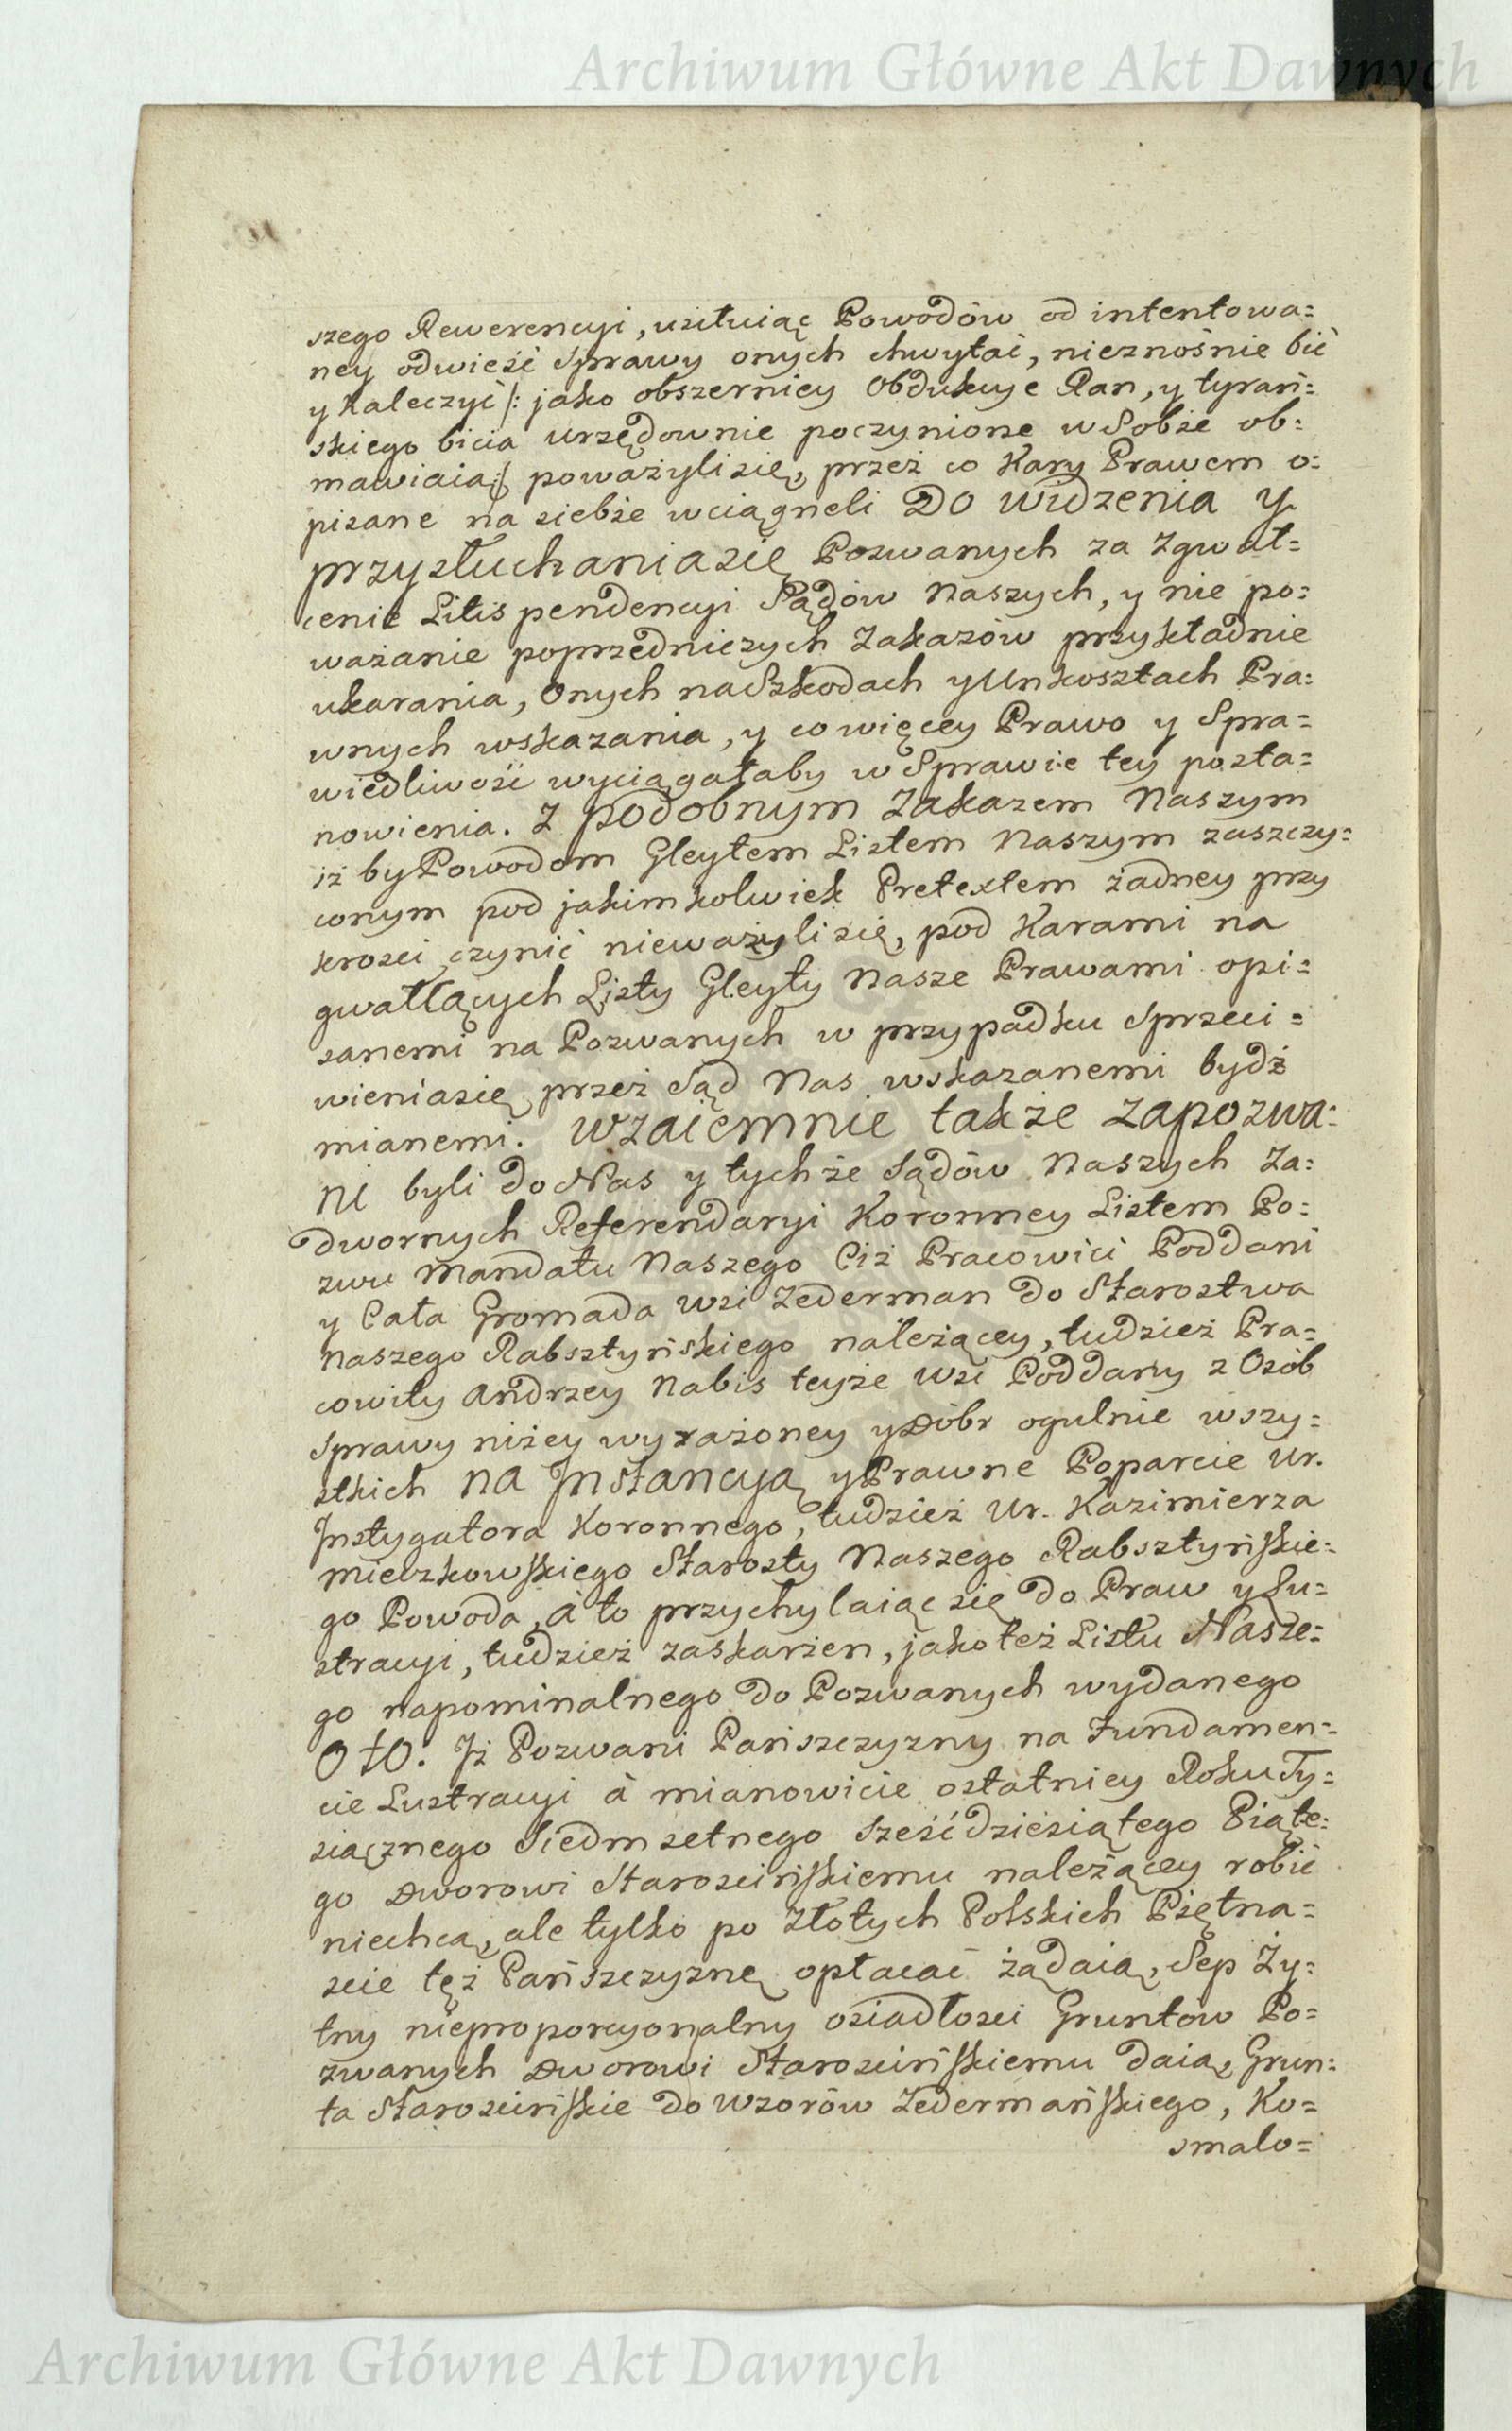 Archiwum Główne Akt Dawnych
szego Rewerencyi, usiłuiąc Powodów od intentowa=
ney odwieść Sprawy onych chwytać, nieznośnie bić
y Kaleczyć /: jako obszerniey Obdukcye Ran, y tyrań=
skiego bicia urzędownie poczynione w Sobie ob=
mawiaią :/ poważyli się, przez co Kary Prawem o=
pisane na siebie wciągneli Do widzenia y
przysłuchania się Pozwanych za zgwał=
cenie Litis pendencyi Sądów Naszych, y nie po=
ważanie poprzedniczych Zakazów przykładnie
ukarania, Onych na Szkodach y Unkosztach Pra=
wnych wskazania, y co więcey Prawo y Spra=
wiedliwość wyciągałaby w Sprawie tey posta=
nowienia. Z podobnym Zakazem Naszym
iż by Powodom Gleytem Listem Naszym zaszczy=
conym pod jakimkolwiek Pretextem żadney przy
krosci czynić nieważyli się, pod Karami na
gwałłących Listy Gleyty Nasze Prawami opi=
sanemi na Pozwanych w przypadku Sprzeci=
wienia się przez Sąd Nas wskazanemi bydź
mianemi. Wzaiemnie także zapozwa=
ni byli do Nas y tychże Sądów Naszych Za=
dwornych Referendaryi Koronney Listem Po=
zwu Mandatu Naszego Ciż Pracowici Poddani
y Cała Gromada wsi Zederman do Starostwa
Naszego Rabsztyńskiego należącey, tudzież Pra=
cowity Andrzey Nabis teyże wsi Poddany z Osób
Sprawy niżey wyrażoney y Dóbr ogulnie wszy=
stkich Na Jnstancyą y Prawne Poparcie Ur.
Jnstygatora Koronnego, tudzież Ur. Kazimierza
Mieczkowskiego Starosty Naszego Rabsztyńskie=
go Powoda, à to przychylaiąc się do Praw y Lu=
stracyi, tudzież zaskarżen, jako też Listu Nasze=
go napominalnego do Pozwanych wydanego
Oto. Jż Pozwani Pańszczyzny na Fundamen=
cie Lustracyi à mianowicie ostatniey Roku Ty=
siącznego Siedmsetnego Sześćdziesiątego Piąte=
go Dworowi Starościńskiemu należącey robić
niechcą, ale tylko po Złotych Polskich Piętna=
scie tęż Pańszczyznę opłacać żądaią, Sep Ży=
tny nieproporcyonalny osiadłosci Gruntow Po=
zwanych Dworowi Starościńskiemu daią, Grun=
ta Starościńskie do Wzorów Zedermańskiego, Ko=
smalo=
Archiwum Główne Akt Dawnych